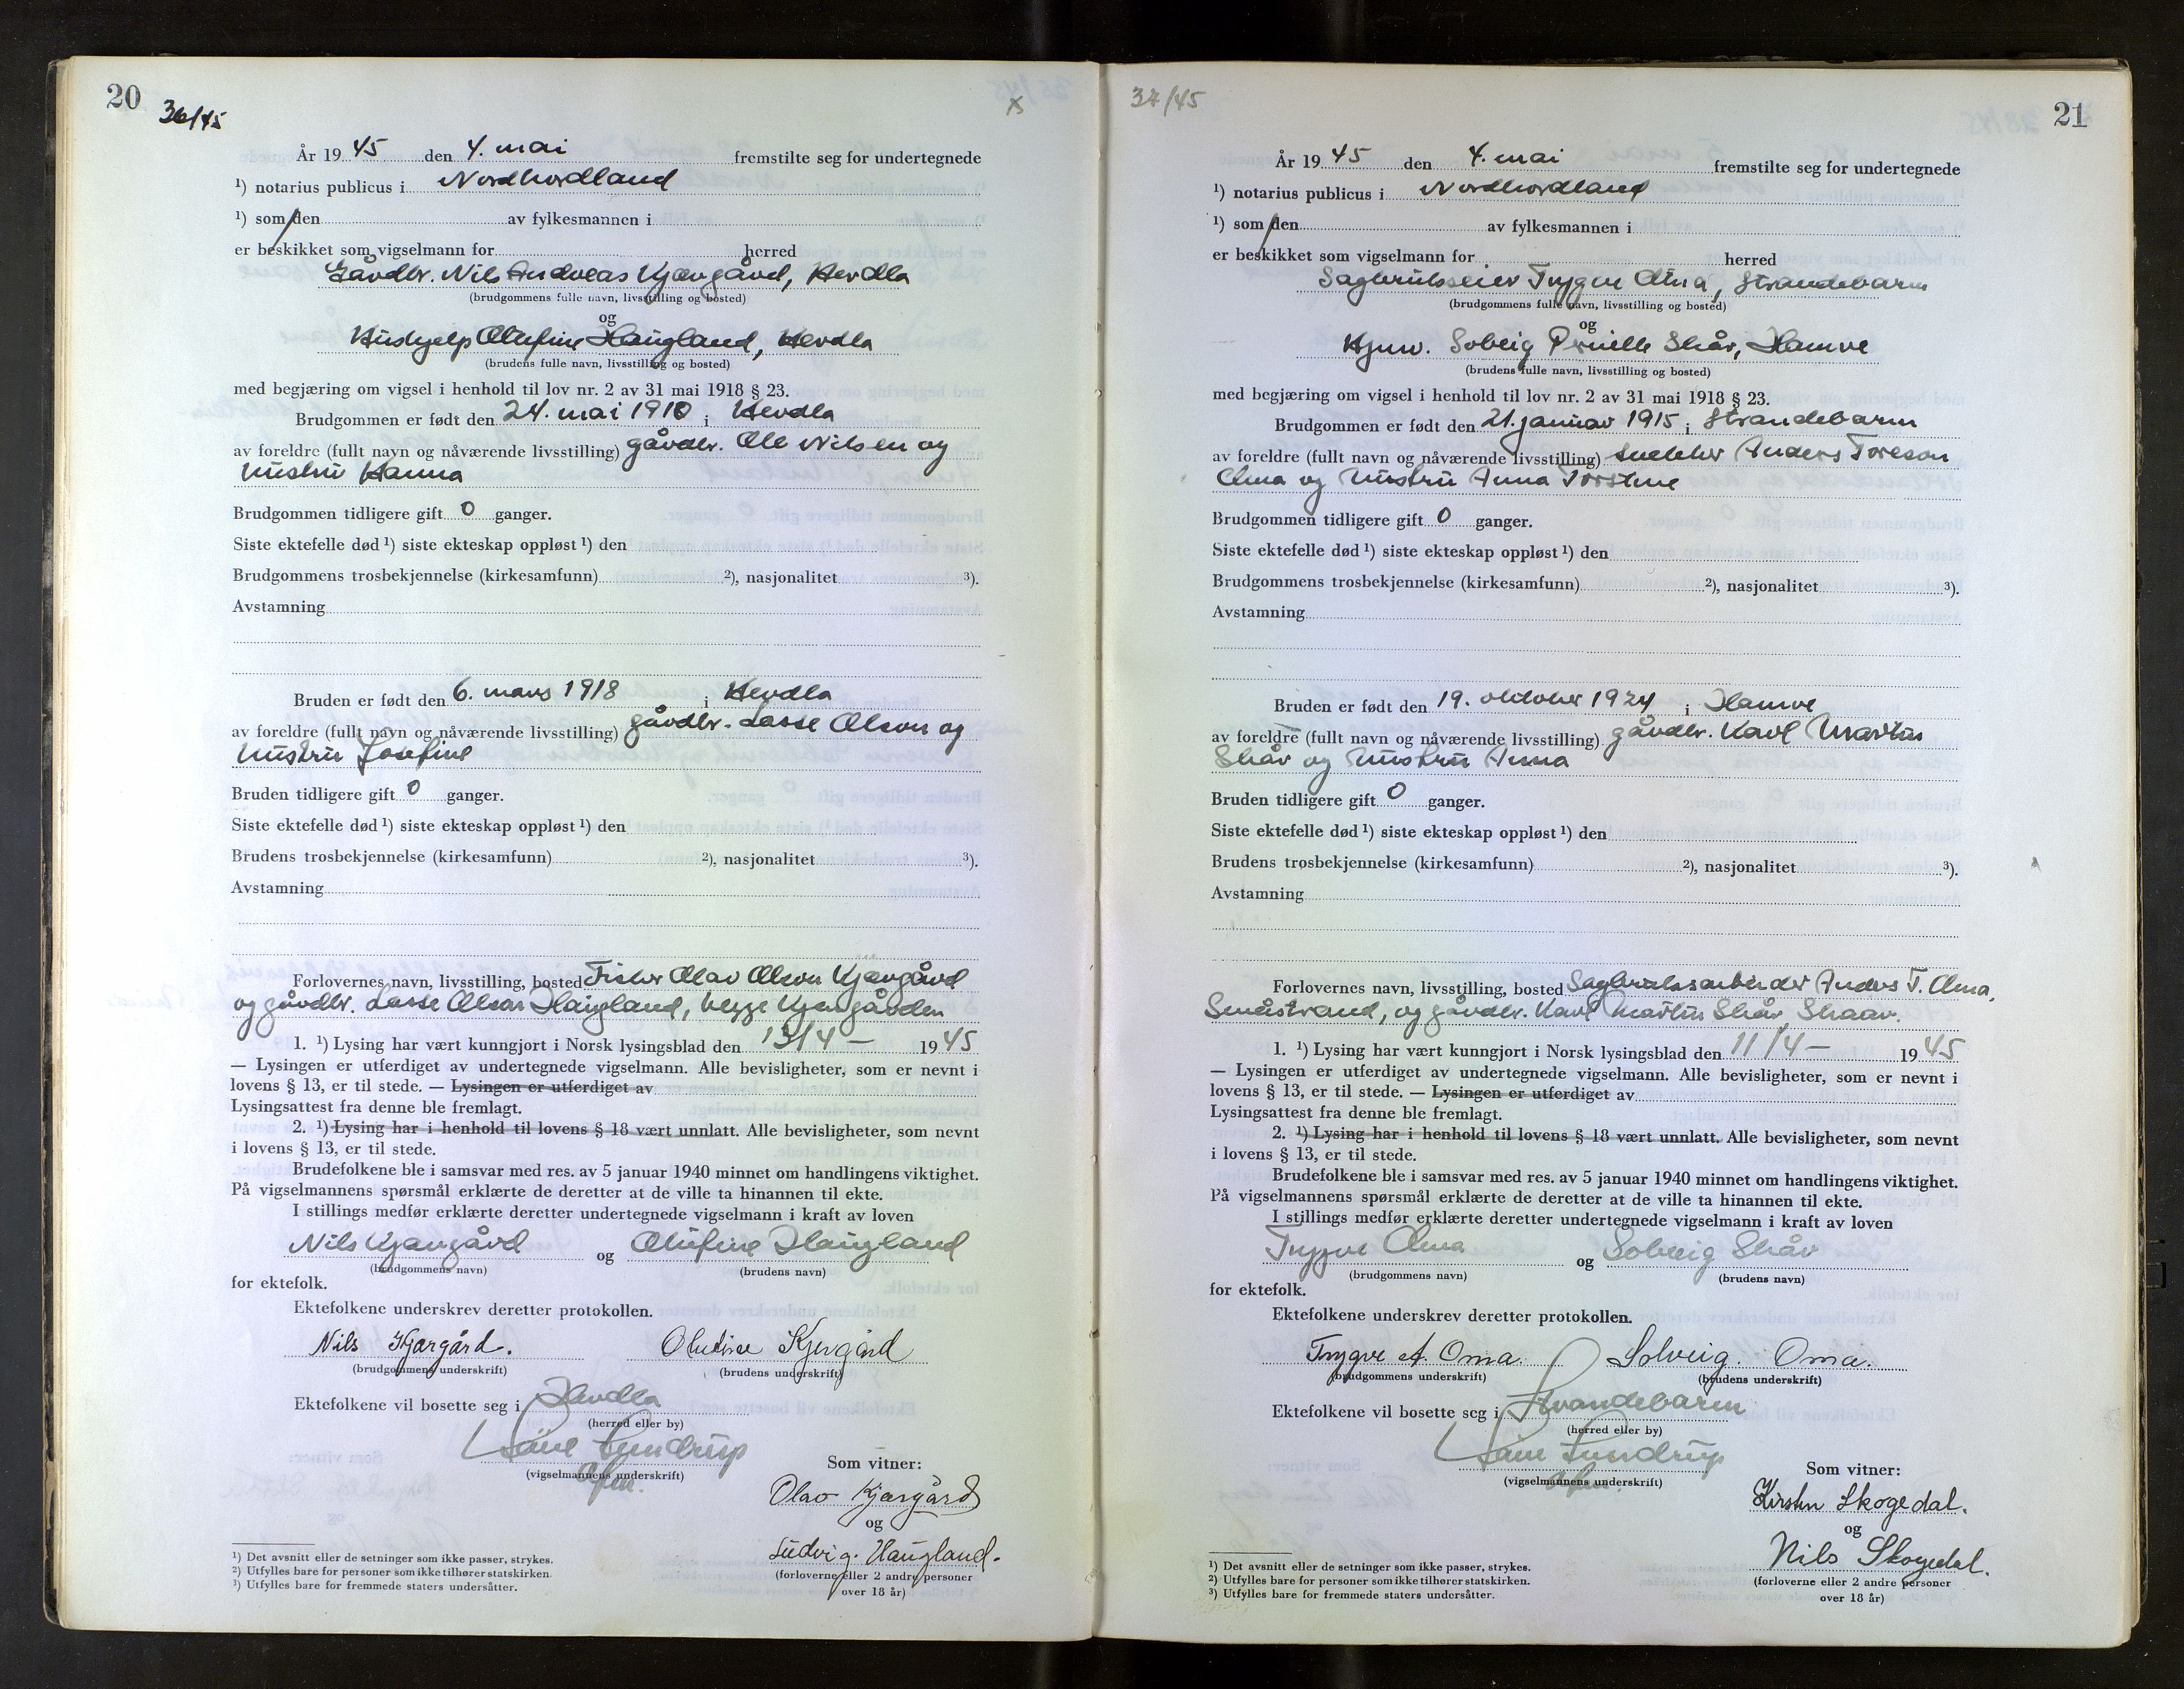 20
36/45
År 19 45 den 4. mai fremstilte seg for undertegnede
¹) notarius publicus i Nordhordland
¹) som den av fylkesmannen i
er beskikket som vigselmann for herred
Gårdbr. Nils Andreas Kjærgård, Herdla
(brudgommens fulle navn, livsstilling og bosted)
og
Hushjelp Olufine Haugland, Herdla
(brudens fulle navn, livsstilling og bosted)
med begjæring om vigsel i henhold til lov nr. 2 av 31 mai 1918 § 23.
Brudgommen er født den 24. mai 1910 i Herdla
av foreldre (fullt navn og nåværende livsstilling) gårdbr. Ole Nilsen og
hustru Hanna
Brudgommen tidligere gift 0 ganger.
Siste ektefelle død ¹) siste ekteskap oppløst ¹) den
Brudgommens trosbekjennelse (kirkesamfunn) ²), nasjonalitet ³).
Avstamning
Bruden er født den 6. mars 1918 i Herdla
av foreldre (fullt navn og nåværende livsstilling) gårdbr. Lasse Olson og
hustru Josefine
Bruden tidligere gift 0 ganger.
Siste ektefelle død ¹) siste ekteskap oppløst ¹) den
Brudens trosbekjennelse (kirkesamfunn) ²), nasjonalitet ³).
Avstamning
Forlovernes navn, livsstilling, bosted Fisker Olav Olson Kjærgård
og gårdbr. Lasse Olson Haugland, begge Kjærgården
1. ¹) Lysing har vært kunngjort i Norsk lysingsblad den 13/4 – 19 45
— Lysingen er utferdiget av undertegnede vigselmann. Alle bevisligheter, som er nevnt i
lovens § 13, er til stede. — Lysingen er utferdiget av
Lysingsattest fra denne ble fremlagt.
2. ¹) Lysing har i henhold til lovens § 18 vært unnlatt. Alle bevisligheter, som nevnt
i lovens § 13, er til stede.
Brudefolkene ble i samsvar med res. av 5 januar 1940 minnet om handlingens viktighet.
På vigselmannens spørsmål erklærte de deretter at de ville ta hinannen til ekte.
I stillings medfør erklærte deretter undertegnede vigselmann i kraft av loven
Nils Kjærgård og Olufine Haugland
(brudgommens navn) (brudens navn)
for ektefolk.
Ektefolkene underskrev deretter protokollen.
Nils Kjærgård. Olufine Kjergård
(brudgommens underskrift) (brudens underskrift)
Ektefolkene vil bosette seg i Herdla
(herred eller by)
Lundrup
(vigselmannens underskrift)
Som vitner:
Olav Kjærgård
og
Ludvig Haugland.
(forloverne eller 2 andre personer
over 18 år)
¹) Det avsnitt eller de setninger som ikke passer, strykes.
²) Utfylles bare for personer som ikke tilhører statskirken.
³) Utfylles bare for fremmede staters undersåtter.
37/45
21
År 19 45 den 4. mai fremstilte seg for undertegnede
¹) notarius publicus i Nordhordland
¹) som den av fylkesmannen i
er beskikket som vigselmann for herred
Sagbrukseier Trygve Oma, Strandebarm
(brudgommens fulle navn, livsstilling og bosted)
og
Hjmv. Solveig Pernille Skår, Hamre
(brudens fulle navn, livsstilling og bosted)
med begjæring om vigsel i henhold til lov nr. 2 av 31 mai 1918 § 23.
Brudgommen er født den 21. januar 1915 i Strandebarm
av foreldre (fullt navn og nåværende livsstilling) snekker Anders Toreson
Oma og hustru Anna Torstine
Brudgommen tidligere gift 0 ganger.
Siste ektefelle død ¹) siste ekteskap oppløst ¹) den
Brudgommens trosbekjennelse (kirkesamfunn) ²), nasjonalitet ³).
Avstamning
Bruden er født den 19. oktober 1924 i Hamre
av foreldre (fullt navn og nåværende livsstilling) gårdbr. Karl Martin
Skår og hustru Anna
Bruden tidligere gift 0 ganger.
Siste ektefelle død ¹) siste ekteskap oppløst ¹) den
Brudens trosbekjennelse (kirkesamfunn) ²), nasjonalitet ³).
Avstamning
Forlovernes navn, livsstilling, bosted Sagbruksarbeider Anders T. Oma,
Småstrand, og gårdbr. Karl Martin Skår Skaar.
1. ¹) Lysing har vært kunngjort i Norsk lysingsblad den 11/4 – 19 45
— Lysingen er utferdiget av undertegnede vigselmann. Alle bevisligheter, som er nevnt i
lovens § 13, er til stede. — Lysingen er utferdiget av
Lysingsattest fra denne ble fremlagt.
2. ¹) Lysing har i henhold til lovens § 18 vært unnlatt. Alle bevisligheter, som nevnt
i lovens § 13, er til stede.
Brudefolkene ble i samsvar med res. av 5 januar 1940 minnet om handlingens viktighet.
På vigselmannens spørsmål erklærte de deretter at de ville ta hinannen til ekte.
I stillings medfør erklærte deretter undertegnede vigselmann i kraft av loven
Trygve Oma og Solveig Skår
(brudgommens navn) (brudens navn)
for ektefolk.
Ektefolkene underskrev deretter protokollen.
Trygve A. Oma. Solveig. Oma.
(brudgommens underskrift) (brudens underskrift)
Ektefolkene vil bosette seg i Strandebarm
(herred eller by)
Lundrup
(vigselmannens underskrift)
Som vitner:
Kirsten Skogedal.
og
Nils Skogedal.
(forloverne eller 2 andre personer
over 18 år)
¹) Det avsnitt eller de setninger som ikke passer, strykes.
²) Utfylles bare for personer som ikke tilhører statskirken.
³) Utfylles bare for fremmede staters undersåtter.